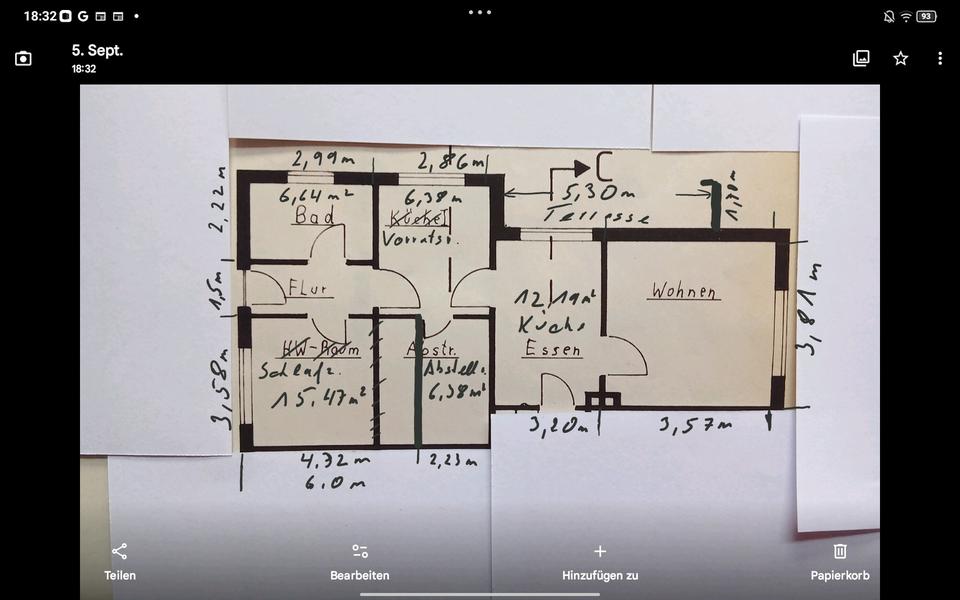 18:32
93
5. Sept.
18:32
2,99m
2,86m
C
6,64m²
6,38m
5,30m
Bad
Küche
Vorratsr.
Terrasse
2,22m
1,5m
FLur
12,19m²
Küche
Essen
Wohnen
3,81m
HW-Raum
Schlafz.
15,47m²
Abstr.
Abstell.
6,38m²
3,58m
3,20m
3,57m
4,32m
2,23m
6,0m
Teilen
Bearbeiten
Hinzufügen zu
Papierkorb